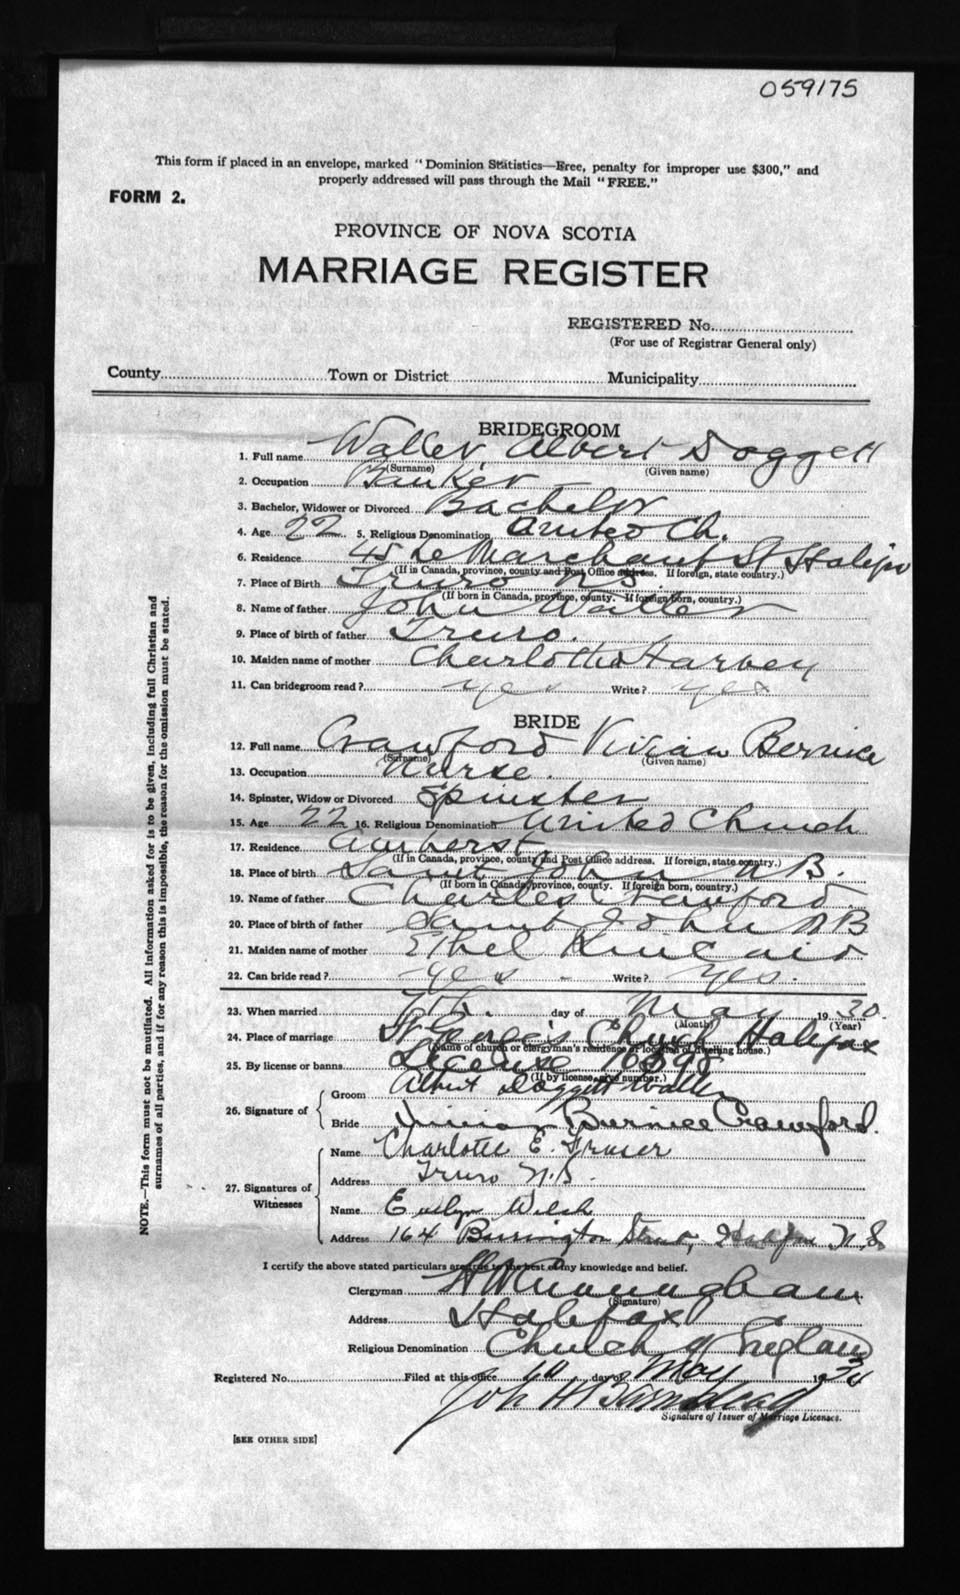 059175
This form if placed in an envelope, marked "Dominion Statistics—Free, penalty for improper use $300," and
properly addressed will pass through the Mail "FREE."
FORM 2.
PROVINCE OF NOVA SCOTIA
MARRIAGE REGISTER
REGISTERED No.
(For use of Registrar General only)
County Town or District Municipality
BRIDEGROOM
1. Full name Waller, Albert Doggett
(Surname) (Given name)
2. Occupation Banker
3. Bachelor, Widower or Divorced Bachelor
4. Age 22 5. Religious Denomination United Ch.
6. Residence 45 LeMarchant St Halifax
(If in Canada, province, county and Post Office address. If foreign, state country.)
7. Place of Birth Truro N S
(If born in Canada, province, county. If foreign born, country.)
8. Name of father John Waller
9. Place of birth of father Truro.
10. Maiden name of mother Charlotte Harvey
11. Can bridegroom read? yes Write? yes
BRIDE
12. Full name Crawford Vivian Bernice
(Surname) (Given name)
13. Occupation Nurse.
14. Spinster, Widow or Divorced Spinster
15. Age 22 16. Religious Denomination United Church
17. Residence Amherst
(If in Canada, province, county and Post Office address. If foreign, state country.)
18. Place of birth Saint John N B.
(If born in Canada, province, county. If foreign born, country.)
19. Name of father Charles Crawford.
20. Place of birth of father Saint John N B
21. Maiden name of mother Ethel Kincaid.
22. Can bride read? yes - Write? Yes.
23. When married 7th. day of May 1930.
(Month) (Year)
24. Place of marriage St George's Church Halifax
(Name of church or clergyman's residence or location of dwelling house.)
25. By license or banns License
(If by license, give number.)
26. Signature of
Groom Albert Doggett Waller
Bride Vivian Bernice Crawford.
27. Signatures of Witnesses
Name Charlotte E. Fraser
Address Truro N.S.
Name Evelyn Welsh
Address 164 Barrington Street, Halifax N.S.
I certify the above stated particulars are true to the best of my knowledge and belief.
Clergyman
(Signature)
Address Halifax
Religious Denomination Church of England
Registered No. Filed at this office day of May 1930
Signature of Issuer of Marriage Licenses.
[SEE OTHER SIDE]
NOTE.—This form must not be mutilated. All information asked for is to be given, including full Christian and
surnames of all parties, and if for any reason this is impossible, the reason for the omission must be stated.